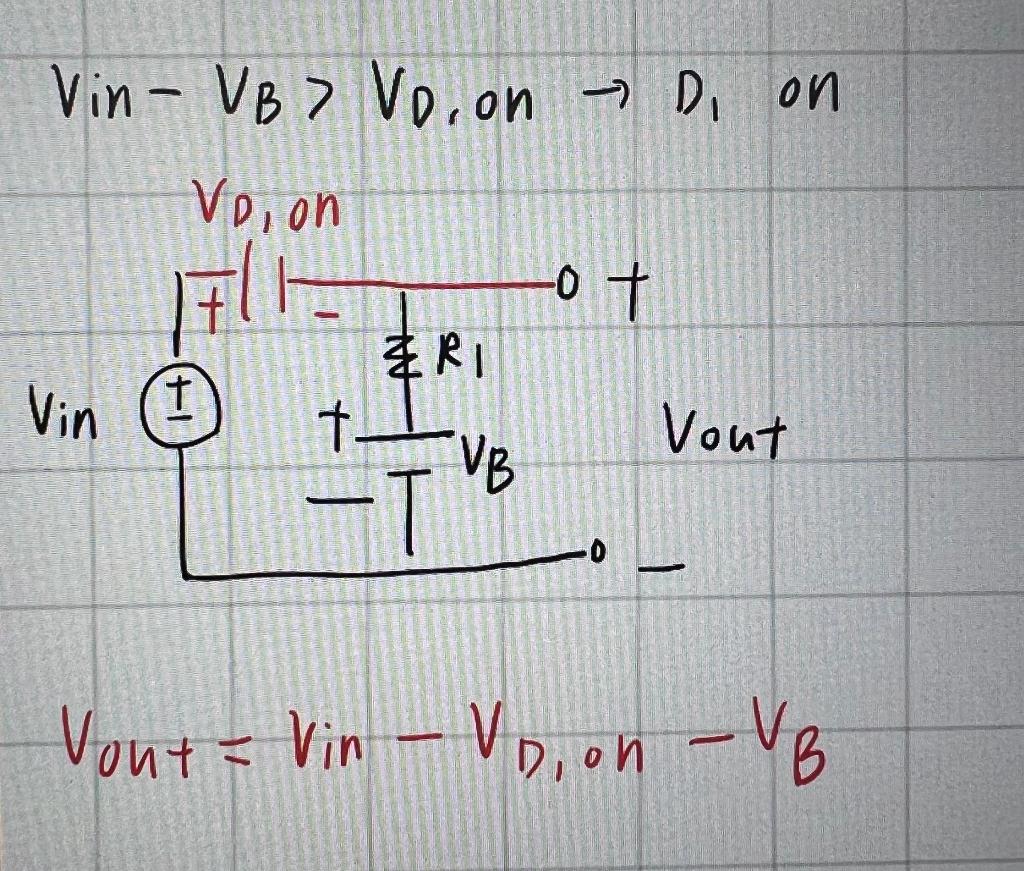 Vin - VB > VD, on → D1 on
VD, on
+ -
+
R1
Vin
+
-
+
VB
-
Vout
-
Vout = Vin - VD, on - VB